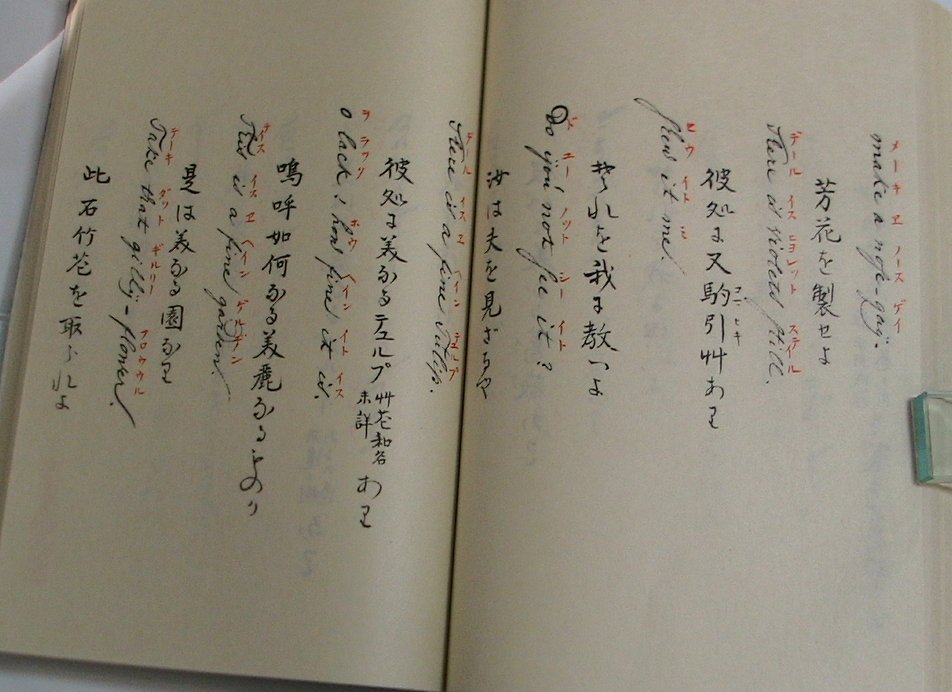 メーキ ヱ ノース ゲイ
make a nose-gay.
芳花を製せよ
デール イス ニヨレット ステイル
There is violets still.
彼処に又駒引艸あり
コマヒキ
セウ イト ミ
shew it me.
其れを我に教へよ
ド ユー ノット シー イト
Do you not see it?
汝は夫を見ざるや
デール イス ヱ ヘイン テュルプ
There is a fine tulip.
彼処に美なるテュルプ 艸花和名未詳 あり
ヲ ラック ホウ ヘイン イト イス
o lack, how fine it is.
嗚呼如何なる美麗なるものか
デイス イス ヱ ヘイン ゲルデン
This is a fine garden.
是は美なる園なり
テーキ ダット ギルリー フロウウル
Take that gilly-flower.
此石竹花を取られよ